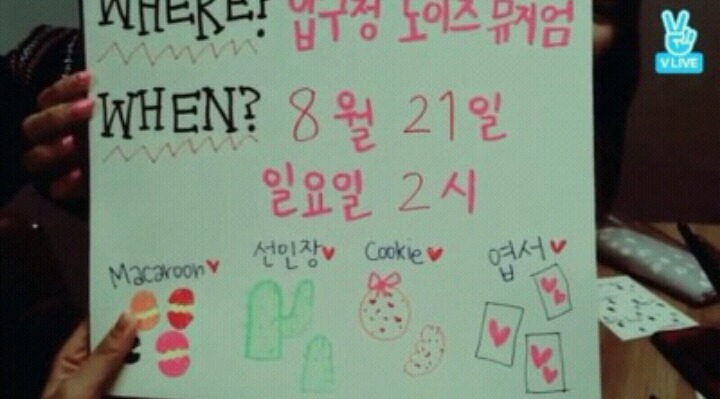 WHERE? 압구정 노이즈 뮤지엄
V LIVE
WHEN? 8월 21일
일요일 2시
Macaroon 선인장 Cookie 엽서